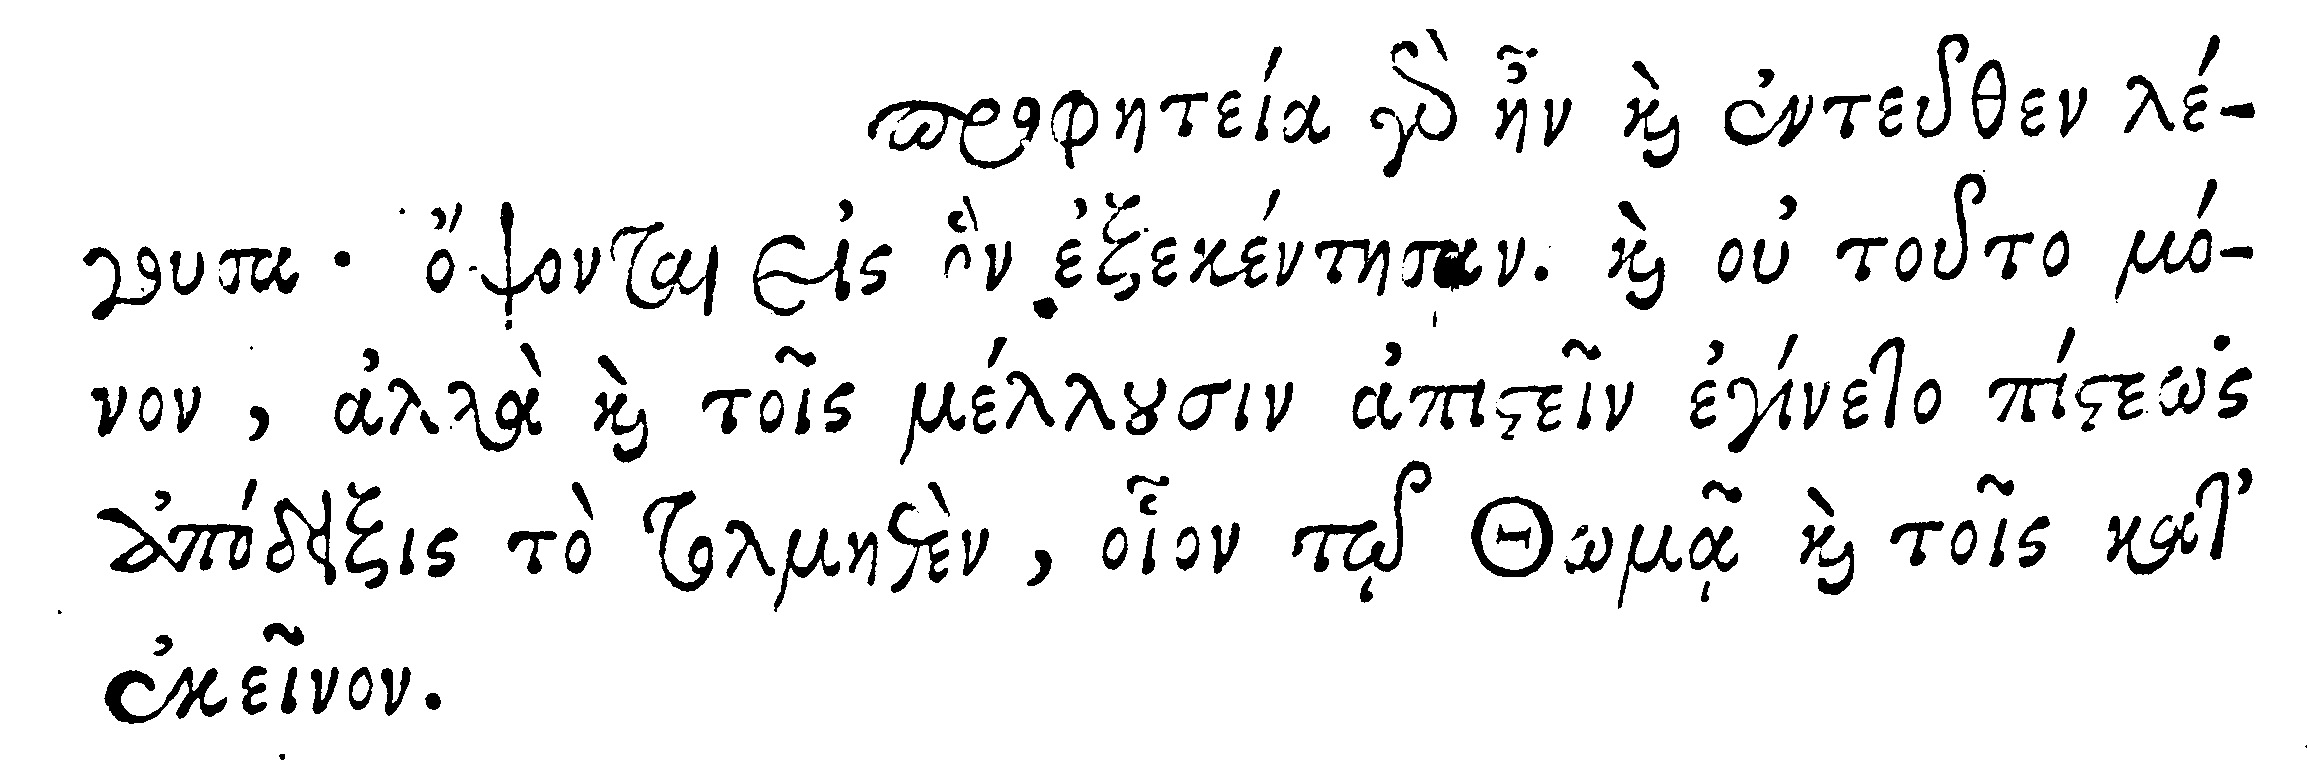 προφητεία γὰρ ἦν καὶ ἐντεῦθεν λέ-
γουσα· ὄψονται εἰς ὃν ἐξεκέντησαν. καὶ οὐ τοῦτο μό-
νον, ἀλλὰ καὶ τοῖς μέλλουσιν ἀπιστεῖν ἐγίνετο πίστεως
ἀπόδειξις τὸ τολμηθὲν, οἷον τῷ Θωμᾷ καὶ τοῖς κατ’
ἐκεῖνον.